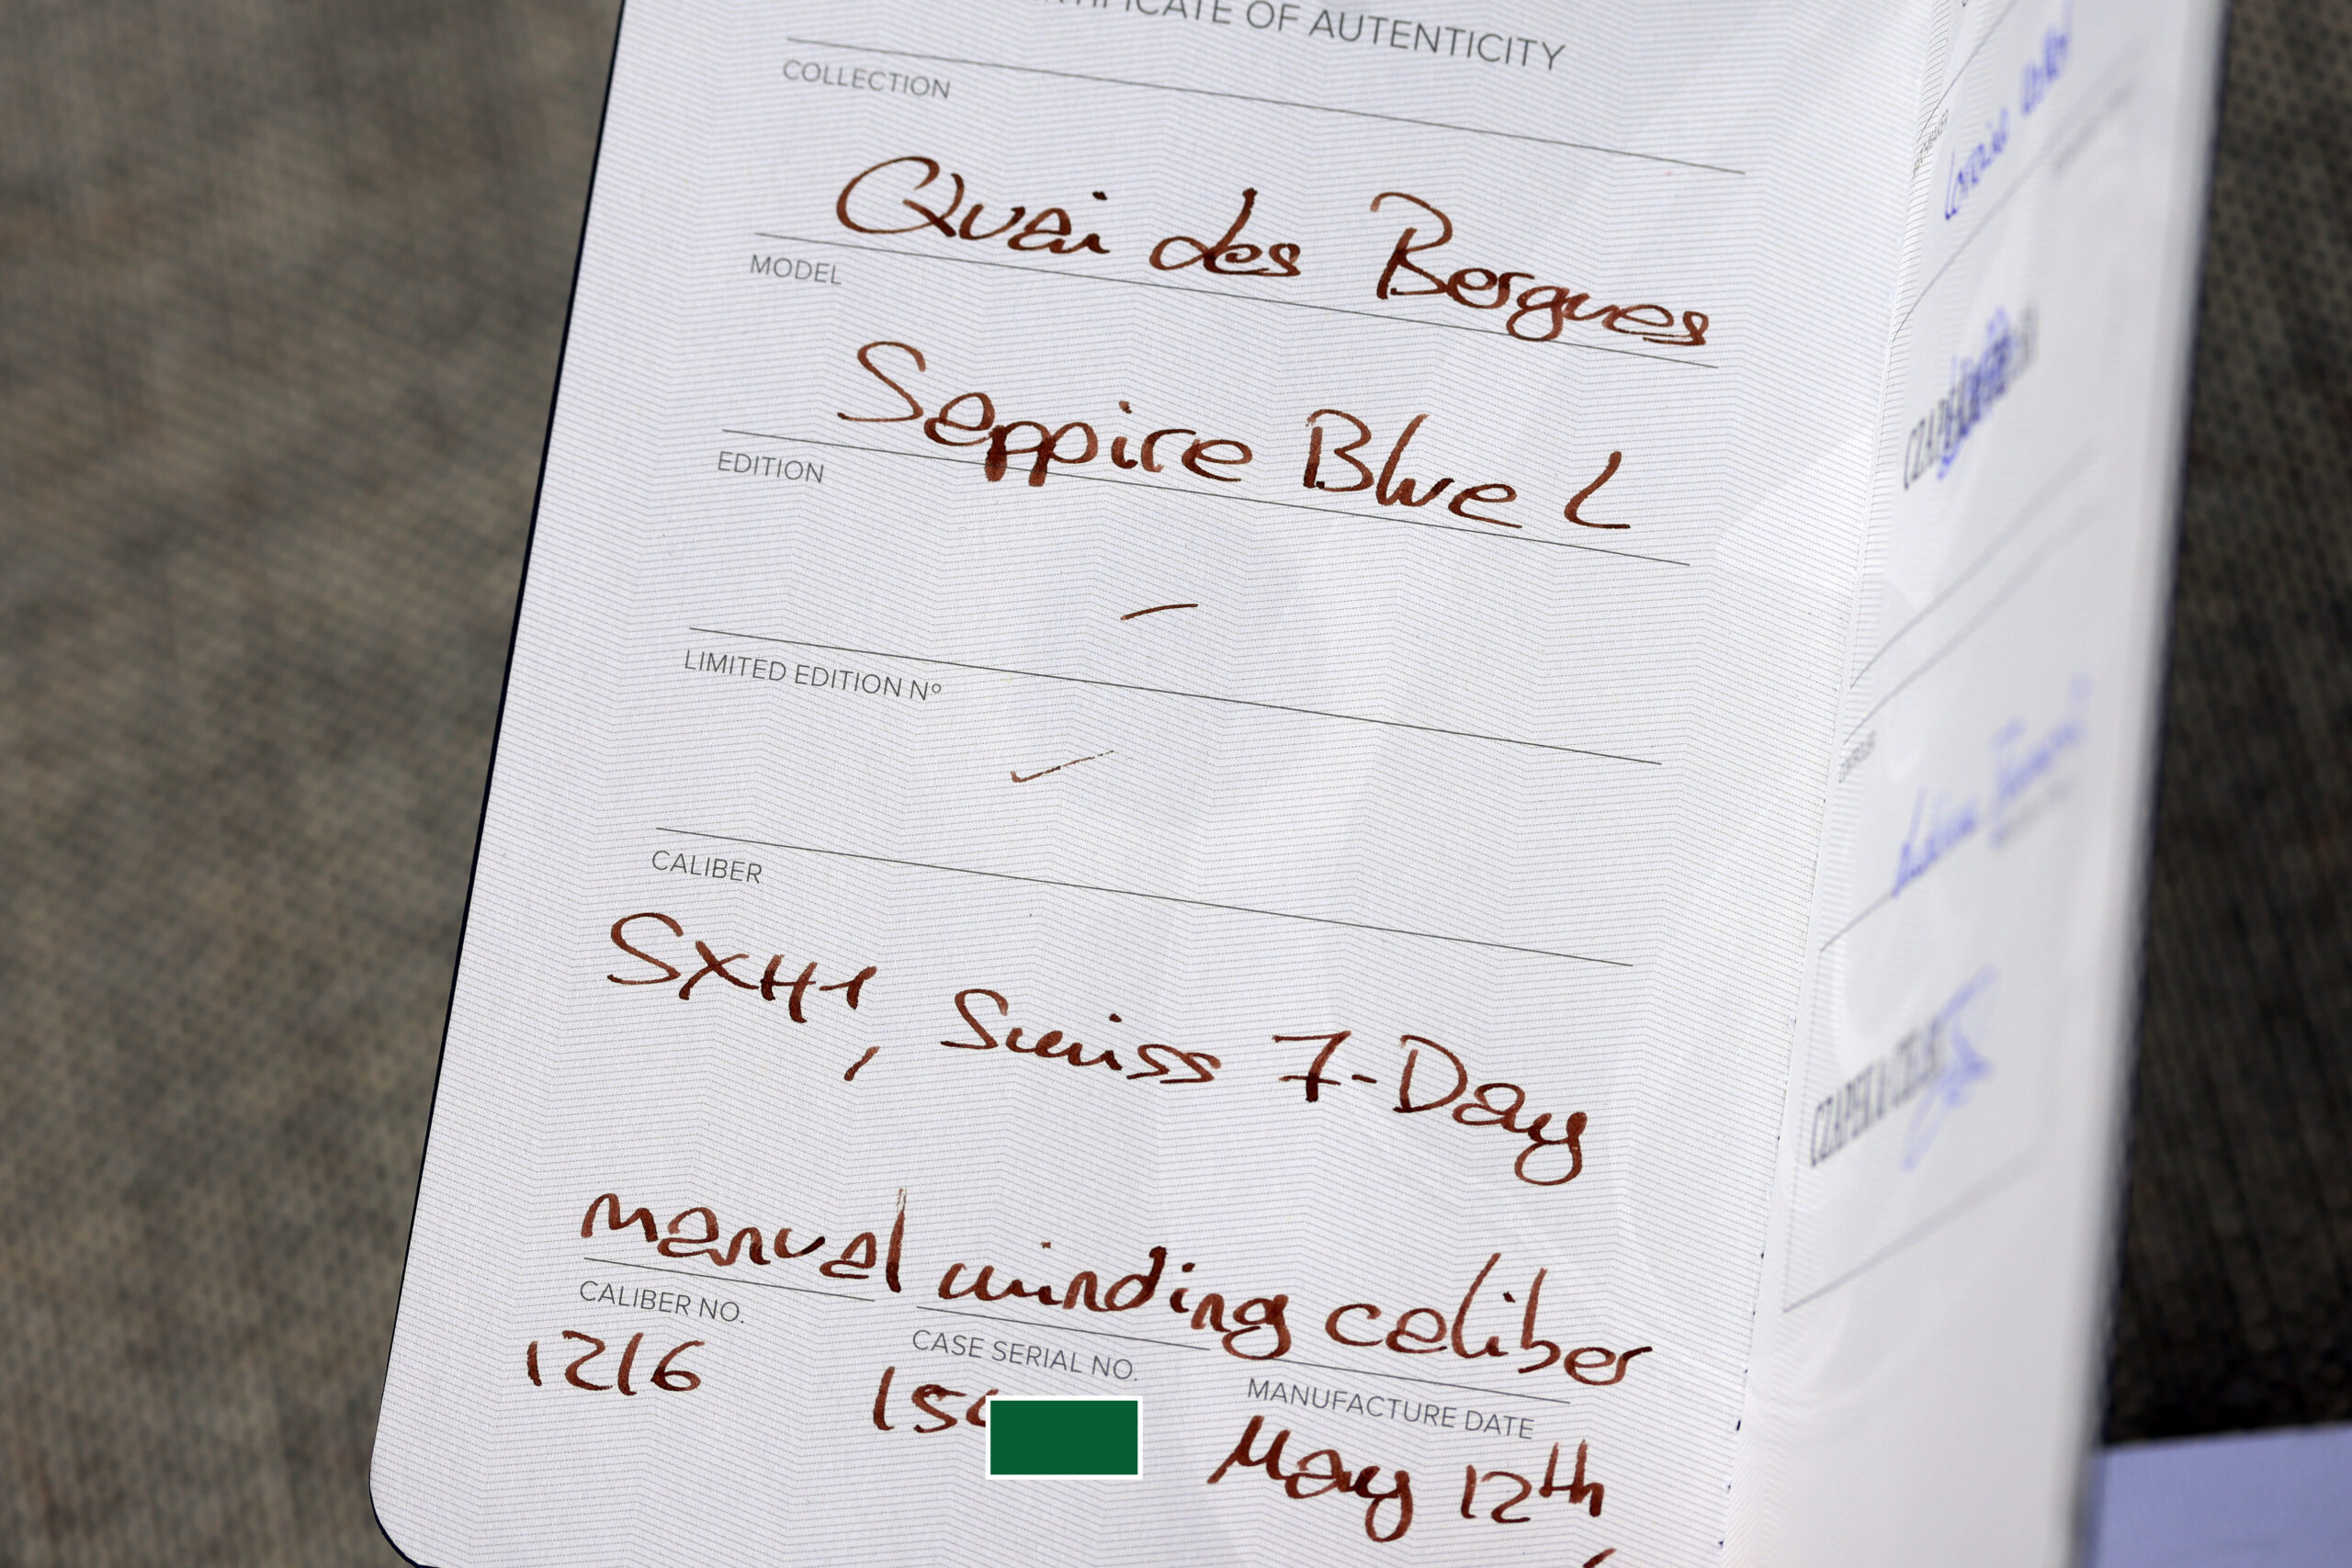 CERTIFICATE OF AUTENTICITY
COLLECTION
Quai des Bergues
MODEL
Sappire Blue L
EDITION
–
LIMITED EDITION Nº
CALIBER
SXH1, Swiss 7-Day
manual winding caliber
CALIBER NO.
1216
CASE SERIAL NO.
MANUFACTURE DATE
May 12th
CZAPEK
CZAPEK & CIE